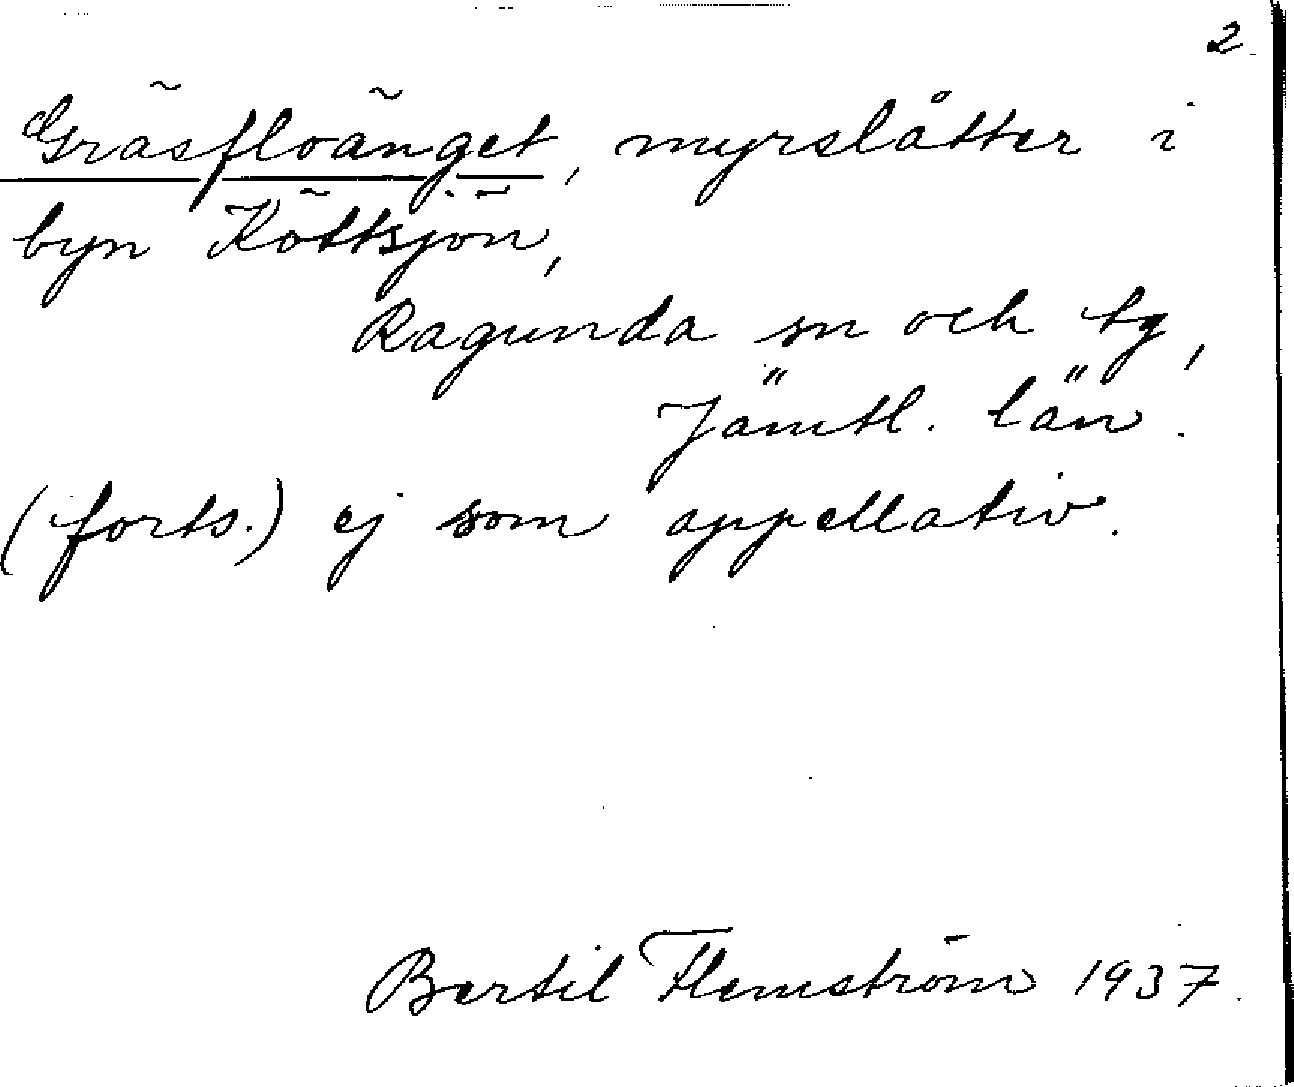 2
Gräsfloänget, myrslåtter i
byn Köttsjön,
Ragunda sn och tg,
Jämtl. län.
(forts.) ej som appellativ.
Bertil Flemström 1937.